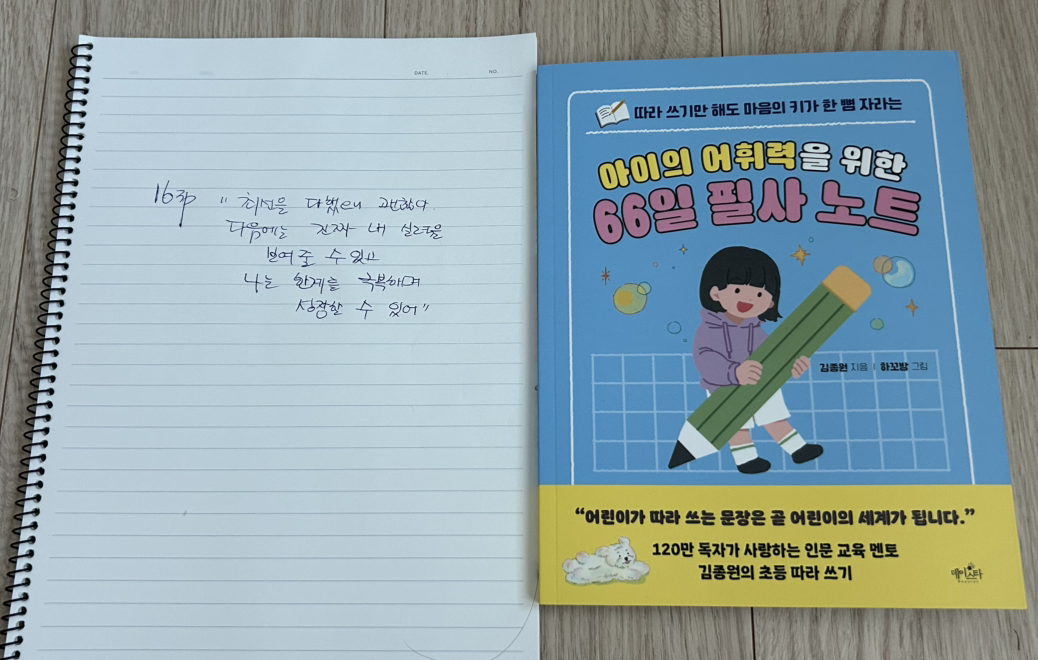 DATE. NO.
16장 "최선을 다했으니 괜찮다.
다음에는 진짜 내 실력을
보여줄 수 있고
나는 한계를 극복하며
성장할 수 있어"
따라 쓰기만 해도 마음의 키가 한 뼘 자라는
아이의 어휘력을 위한
66일 필사 노트
김종원 지음 | 하꼬방 그림
"어린이가 따라 쓰는 문장은 곧 어린이의 세계가 됩니다."
120만 독자가 사랑하는 인문 교육 멘토
김종원의 초등 따라 쓰기
테이스타